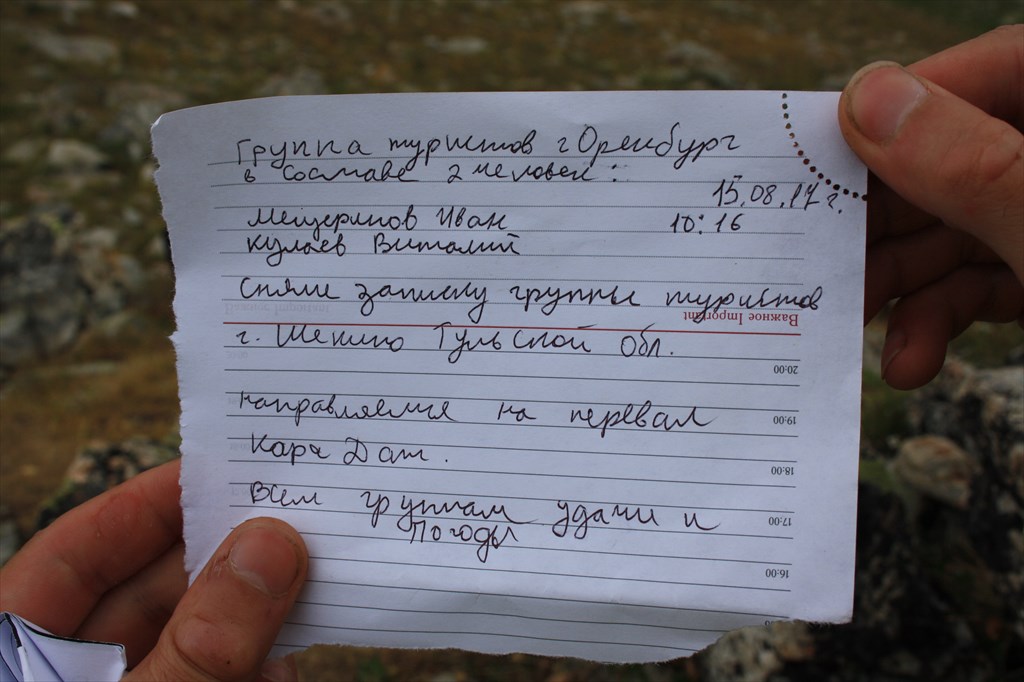 Группа туристов г Оренбург
в составе 2 человек:
15.08.17 г.
Мещеряков Иван
10:16
Кулаев Виталий
Сняли записку группы туристов
Важное Important
г. Щекино Тульской Обл.
20:00
направляемся на перевал
19:00
Кара Даш.
18:00
Всем группам удачи и
17:00
Погоды
16:00